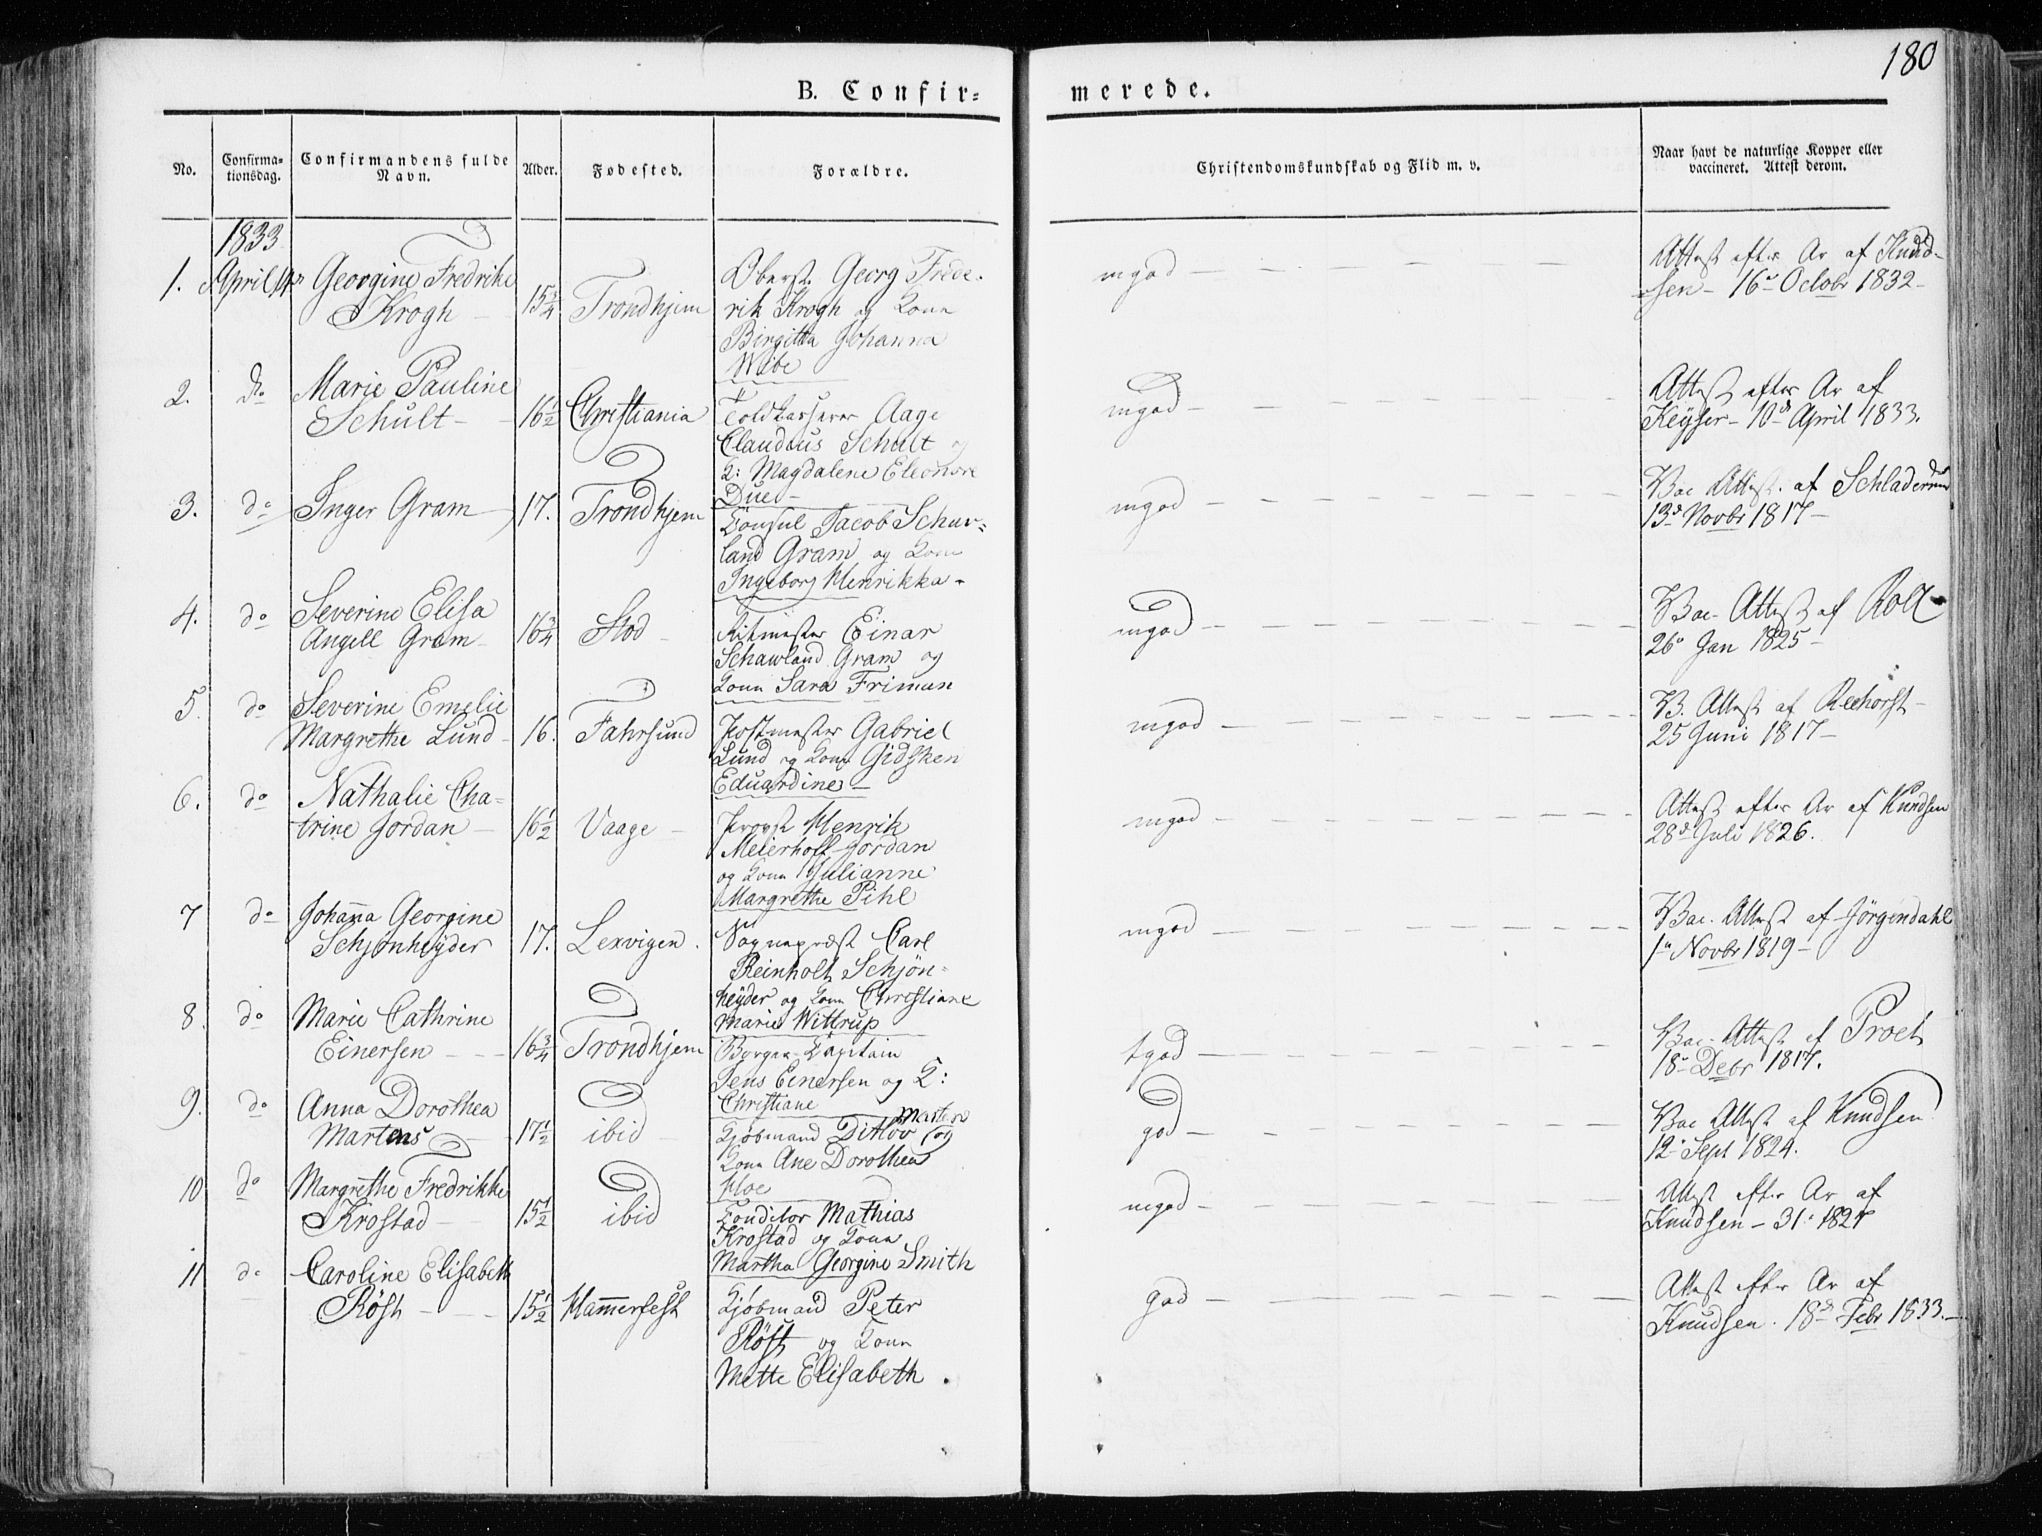 180
B. Confir-
merede.
No.
Confirma-
tionsdag.
Confirmandens fulde
Navn.
Alder.
Fødested.
Forældre.
Christendomskundskab og Flid m. v.
Naar havt de naturlige Kopper eller
vaccineret. Attest derom.
1833
1. April 14 Georgine Fredrike
Krogh
15 3/4 Trondhjem
Oberst Georg Frede-
rik Krogh og Kone
Birgitta Johanna
Wibe
mgod
Attest efter Ar af Knud-
sen 16 Octobr 1832
2. do Marie Pauline
Schult
16 1/2 Christiania
Toldkasserer Aage
Claudius Schult og
K: Magdalene Eleonore
Due
mgod
Attest efter Ar af
Keyser 10d April 1833.
3. do Inger Gram
17. Trondhjem
Consul Jacob Schav-
land Gram og Kone
Ingeborg Henrikka
mgod
Vac Attest af Schladermund
13d Novbr 1817
4. do Severine Elisa
Angell Gram
16 3/4 Stod
Ritmester Einar
Schawland Gram og
Kone Sara Friman
mgod
Vac. Attest af Roll
26 Jan 1825
5. do Severine Emelie
Margrethe Lund
16. Fahrsund
Postmester Gabriel
Lund og Kone Gidsken
Eduardine
mgod
V. Attest af Reehorst
25 Juni 1817
6. do Nathalie Cha-
trine Jordan
16 1/2 Vaage
Provst Henrik
Meierhoff Jordan
og Kone Julianne
Margrethe Pihl
mgod
Attest efter Ar af Knudsen
28d Juli 1826.
7 do Johanna Georgine
Schjønheyder
17. Lexvigen.
Sognepræst Carl
Reinholt Schjøn-
heyder og Kone Christiane
Marie Wittrup
mgod
Vac. Attest af Jörgendahl
1 Novbr 1819
8. do Marie Cathrine
Einersen
16 3/4 Trondhjem
Borger-Capitain
Jens Einersen og K:
Christiane
tgod
Vac. Attest af Proet
18 Debr 1817.
9. do Anna Dorothea
Martens
17 1/2 ibid
Kjöbmand Ditlov Martens og
Kone Ane Dorothea
Hoe
god
Vac Attest af Knudsen
12 Sept 1824.
10 do Margrethe Fredrikke
Krostad
15 1/2 ibid
Conditor Mathias
Krostad og Kone
Martha Georgine Smith
mgod
Attest efter Ar af
Knudsen 31
11 do Caroline Elisabeth
Röst
15 1/2 Hamerfest
Kjöbmand Peter
Röst og Kone
Mette Elisabeth.
god
Attest efter Ar af
Knudsen. 18d Febr 1833.